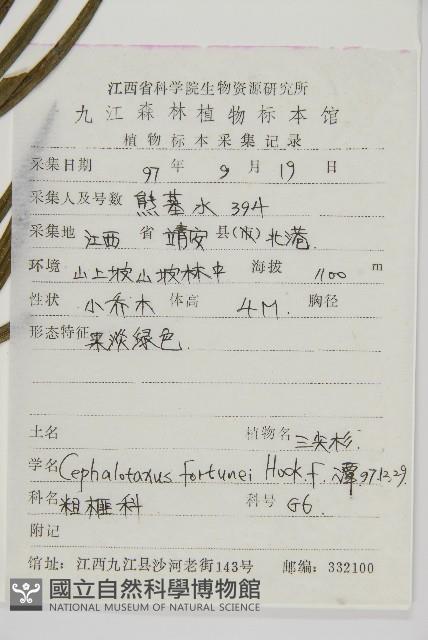 江西省科学院生物资源研究所
九江森林植物标本馆
植物标本采集记录
采集日期 97 年 9 月 19 日
采集人及号数 熊基水 394
采集地 江西 省 靖安 县(市) 北港
环境 山上坡山坡林中 海拔 1100 m
性状 小乔木 体高 4M. 胸径
形态特征 果淡绿色.
土名 植物名 三尖杉.
学名 Cephalotaxus fortunei Hook.f. 潭 97.12.29.
科名 粗榧科 科号 G6.
附记
馆址：江西九江县沙河老街143号 邮编：332100
國立自然科學博物館
NATIONAL MUSEUM OF NATURAL SCIENCE